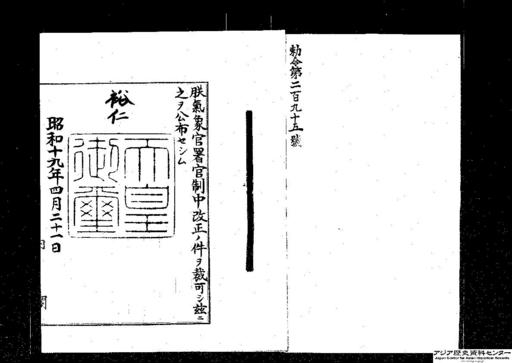 勅令第二百九十五號
朕氣象官署官制中改正ノ件ヲ裁可シ茲ニ
之ヲ公布セシム
裕仁
天皇
御璽
昭和十九年四月二十一日
内閣
アジア歴史資料センター
Japan Center for Asian Historical Records